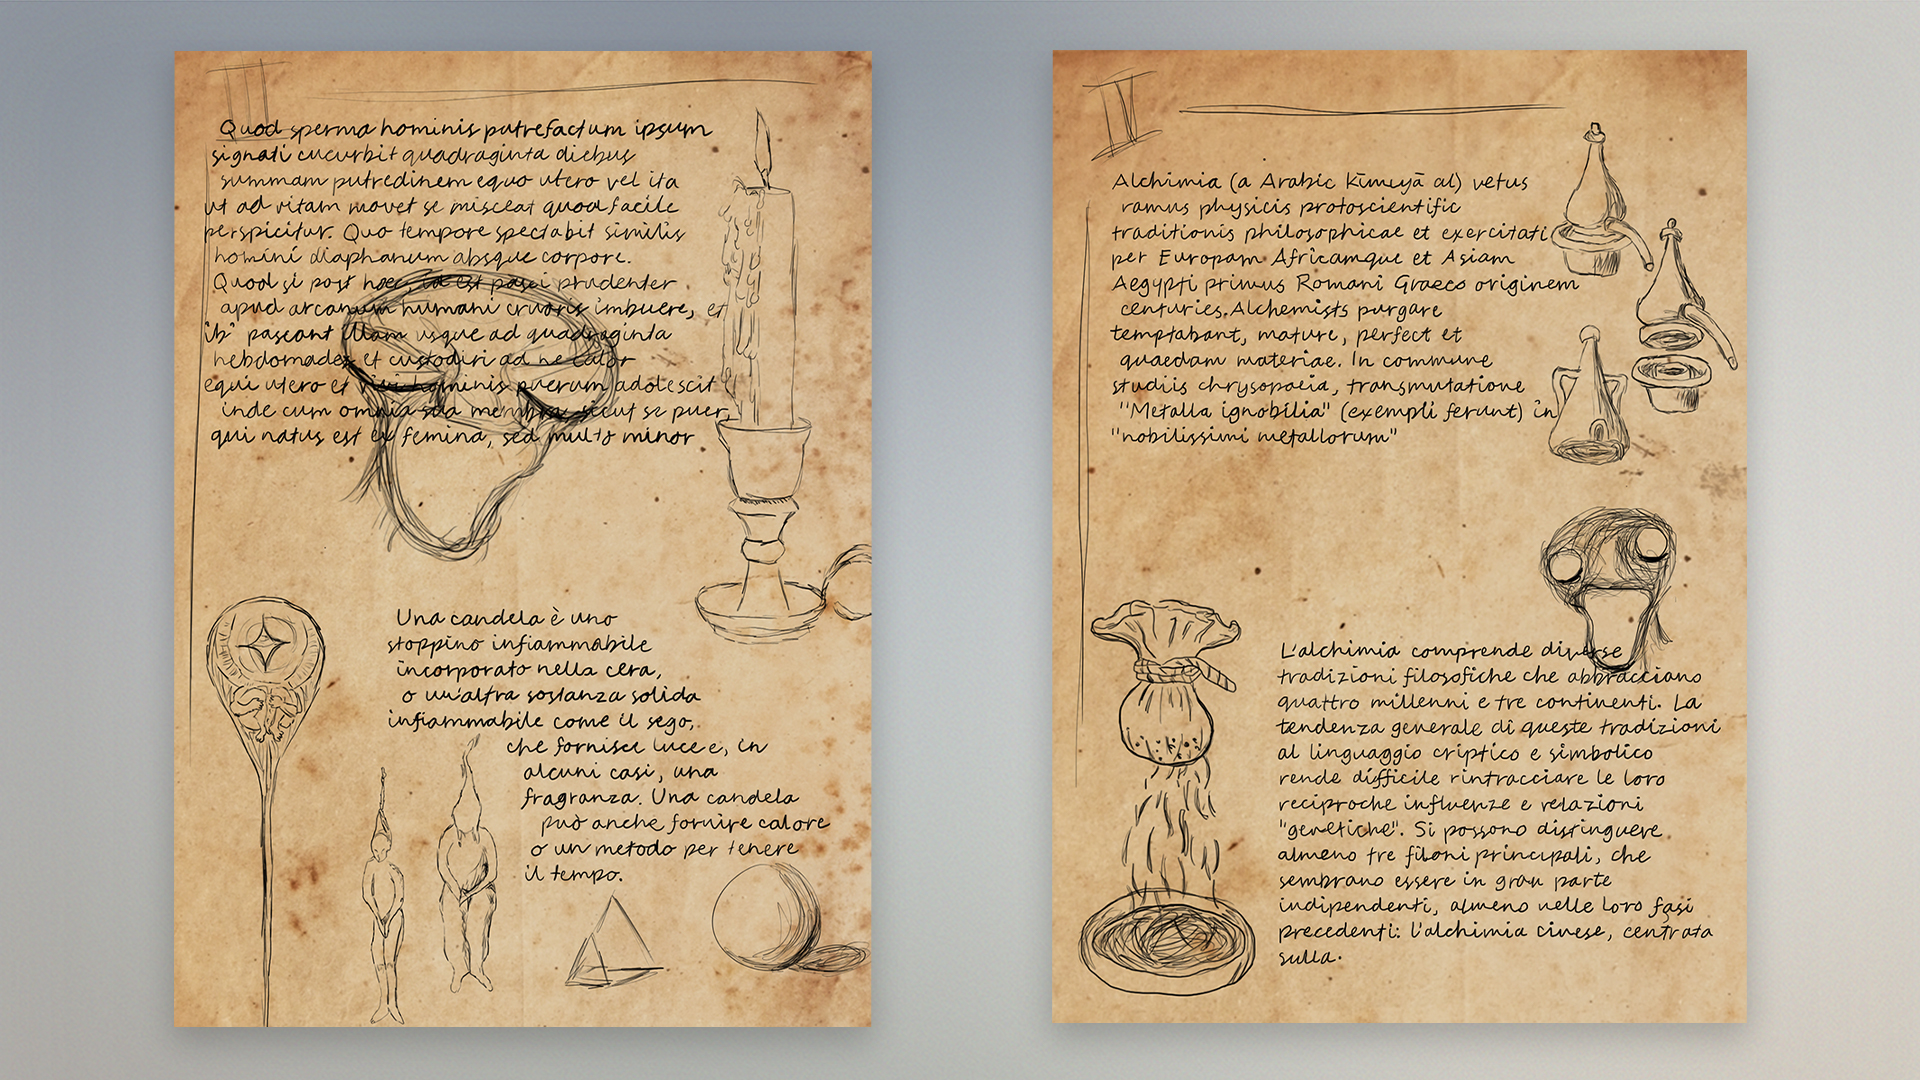 III
Quod sperma hominis putrefactum ipsum
signati cucurbit quadraginta diebus
summam putredinem equo utero vel ita
ut ad vitam movet se misceat quod facile
perspicitur. Quo tempore spectabit similis
homini diaphanum absque corpore.
Quod si post hoc, id est pasci prudenter
apud arcanum humani cruoris imbuere, et
ib' pascant illam usque ad quadraginta
hebdomades et custodiri ad ne calor
equi utero et vivi hominis puerum adolescit
inde cum omnia sua membra sicut se puer,
qui natus est ex femina, sed multo minor
Una candela è uno
stoppino infiammabile
incorporato nella cera,
o un'altra sostanza solida
infiammabile come il sego,
che fornisce luce e, in
alcuni casi, una
fragranza. Una candela
può anche fornire calore
o un metodo per tenere
il tempo.
IV
Alchimia (a Arabic kīmuyā al) vetus
ramus physicis protoscientific
traditionis philosophicae et exercitati
per Europam Africamque et Asiam
Aegypti primus Romani Graeco originem
centuries. Alchemists purgare
temptabant, mature, perfect et
quaedam materiae. In commune
studiis chrysopoeia, transmutatione
"Metalla ignobilia" (exempli ferunt) in
"nobilissimi metallorum"
L'alchimia comprende diverse
tradizioni filosofiche che abbracciano
quattro millenni e tre continenti. La
tendenza generale di queste tradizioni
al linguaggio criptico e simbolico
rende difficile rintracciare le loro
reciproche influenze e relazioni
"genetiche". Si possono distinguere
almeno tre filoni principali, che
sembrano essere in gran parte
indipendenti, almeno nelle loro fasi
precedenti: l'alchimia cinese, centrata
sulla.